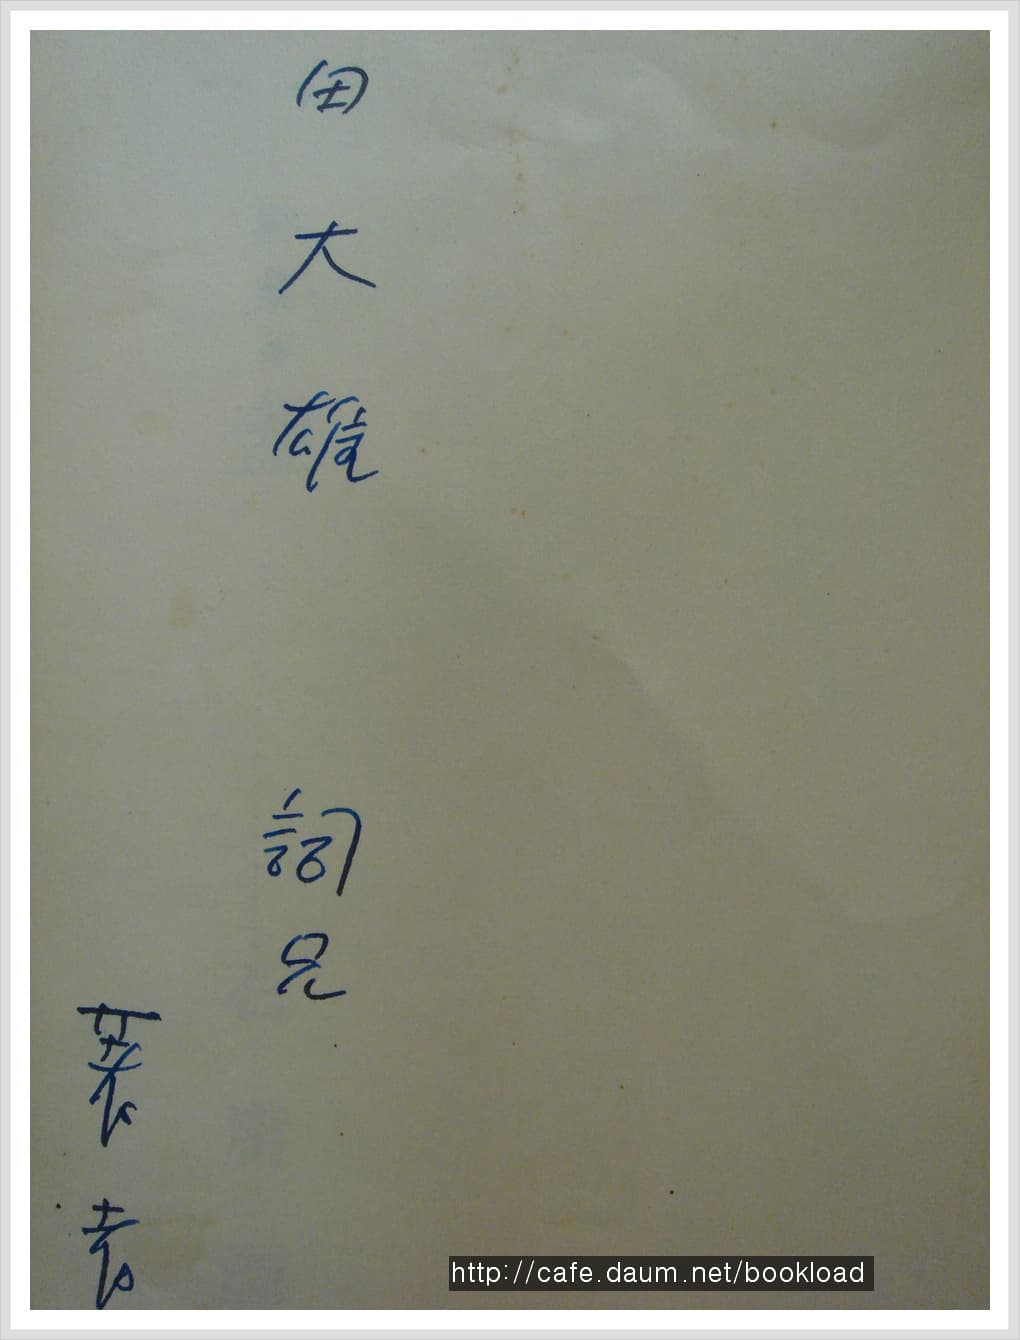 田大雄 詞兄
著者
http://cafe.daum.net/bookload